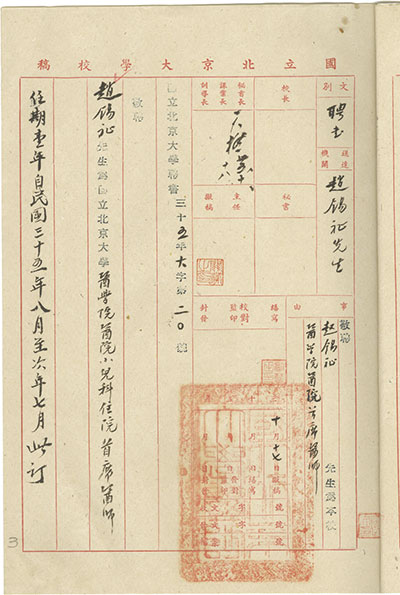 國立北京大學校稿
文別
聘書
送達機關
趙錫祉先生
事由
敬聘
趙錫祉
先生為本校
醫學院醫院首席醫師
校長
秘書
秘書長
課業長
訓導長
主任
擬稿
繕寫
校對
監印
封發
十月十七日
國立北京大學聘書 三十五年大字第二〇號
敬聘
趙錫祉先生為國立北京大學醫學院醫院小兒科住院首席醫師
任期壹年自民國三十五年八月至卅六年七月 此訂
3